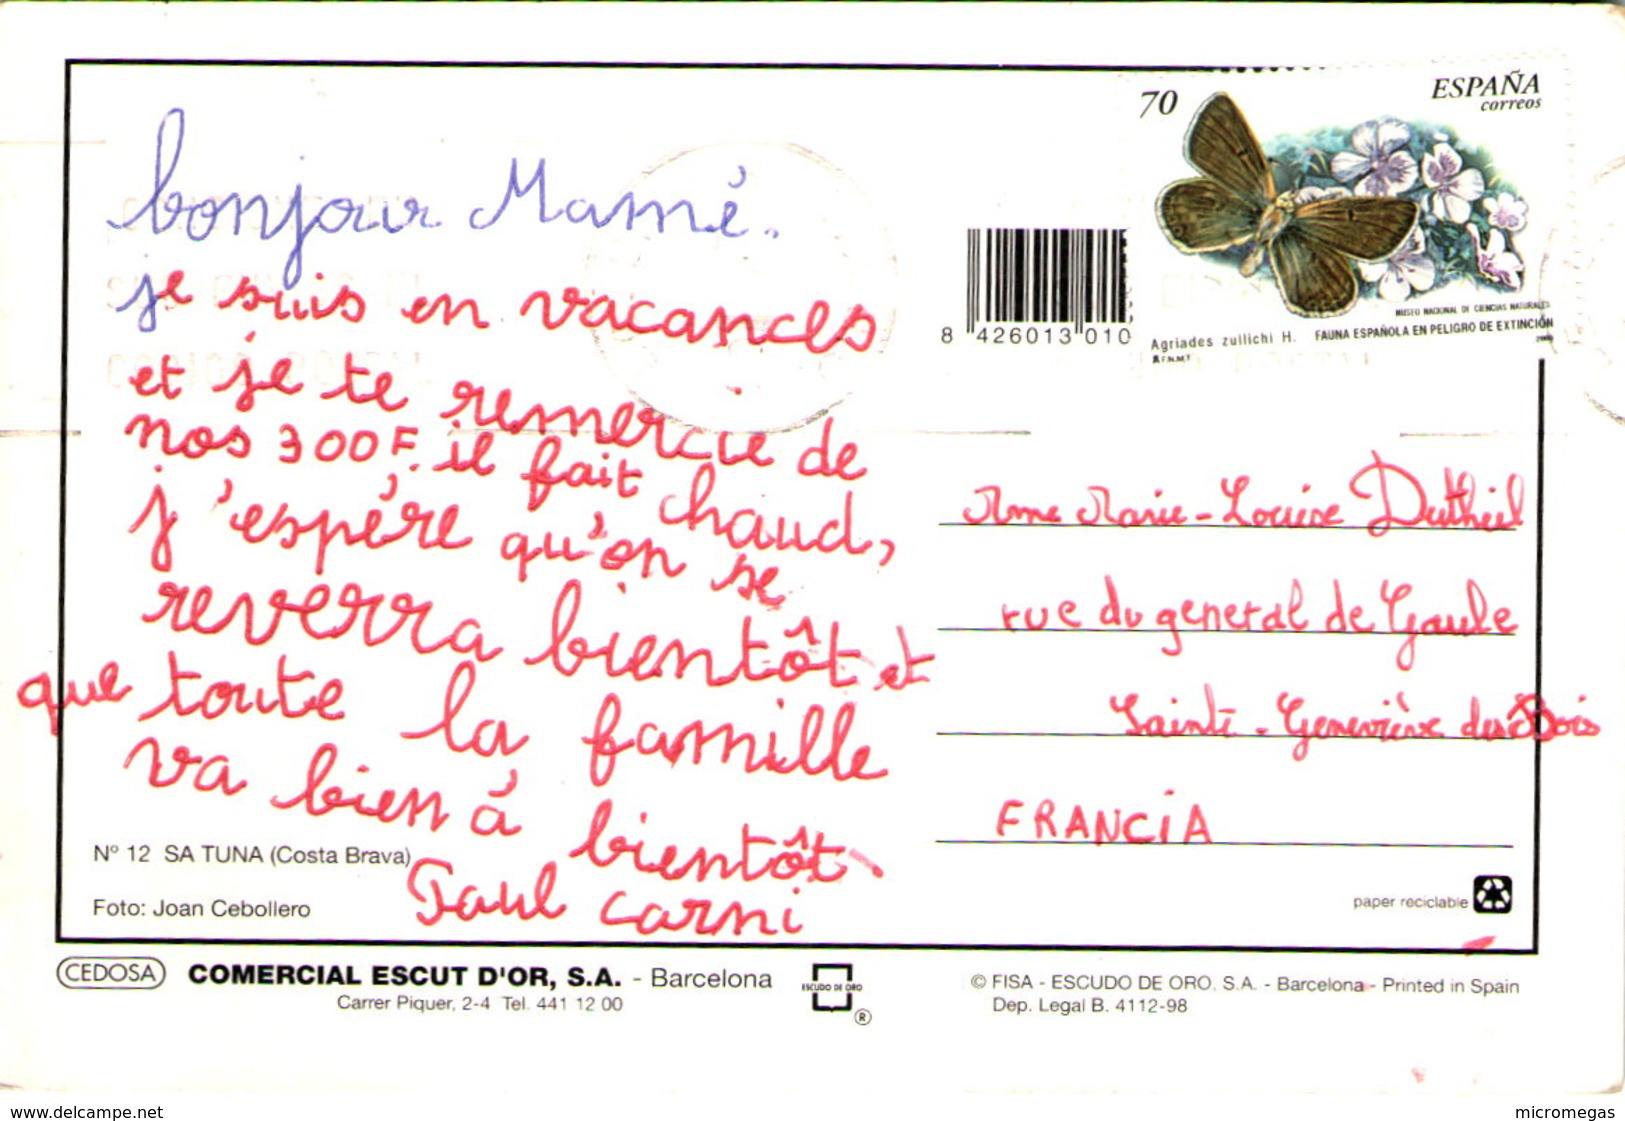 bonjour Mamé.
je suis en vacances
et je te remercie de
nos 300F. il fait chaud,
j'espére qu'on se
reverra bientôt et
que toute la famille
va bien á bientôt.
Paul Carni
Nº 12 SA TUNA (Costa Brava)
Foto: Joan Cebollero
70
ESPAÑA
correos
MUSEO NACIONAL DE CIENCIAS NATURALES
Agriades zullichi H. FAUNA ESPAÑOLA EN PELIGRO DE EXTINCIÓN
R.F.N.M.T. 2000
8 426013 010
Mme Marie-Louise Dutheil
rue du general de Gaule
Sainte-Geneviève des Bois
FRANCiA
paper reciclable
CEDOSA COMERCIAL ESCUT D'OR, S.A. - Barcelona
Carrer Piquer, 2-4 Tel. 441 12 00
ESCUDO DE ORO
®
© FISA - ESCUDO DE ORO, S.A. - Barcelona - Printed in Spain
Dep. Legal B. 4112-98
www.delcampe.net
micromegas